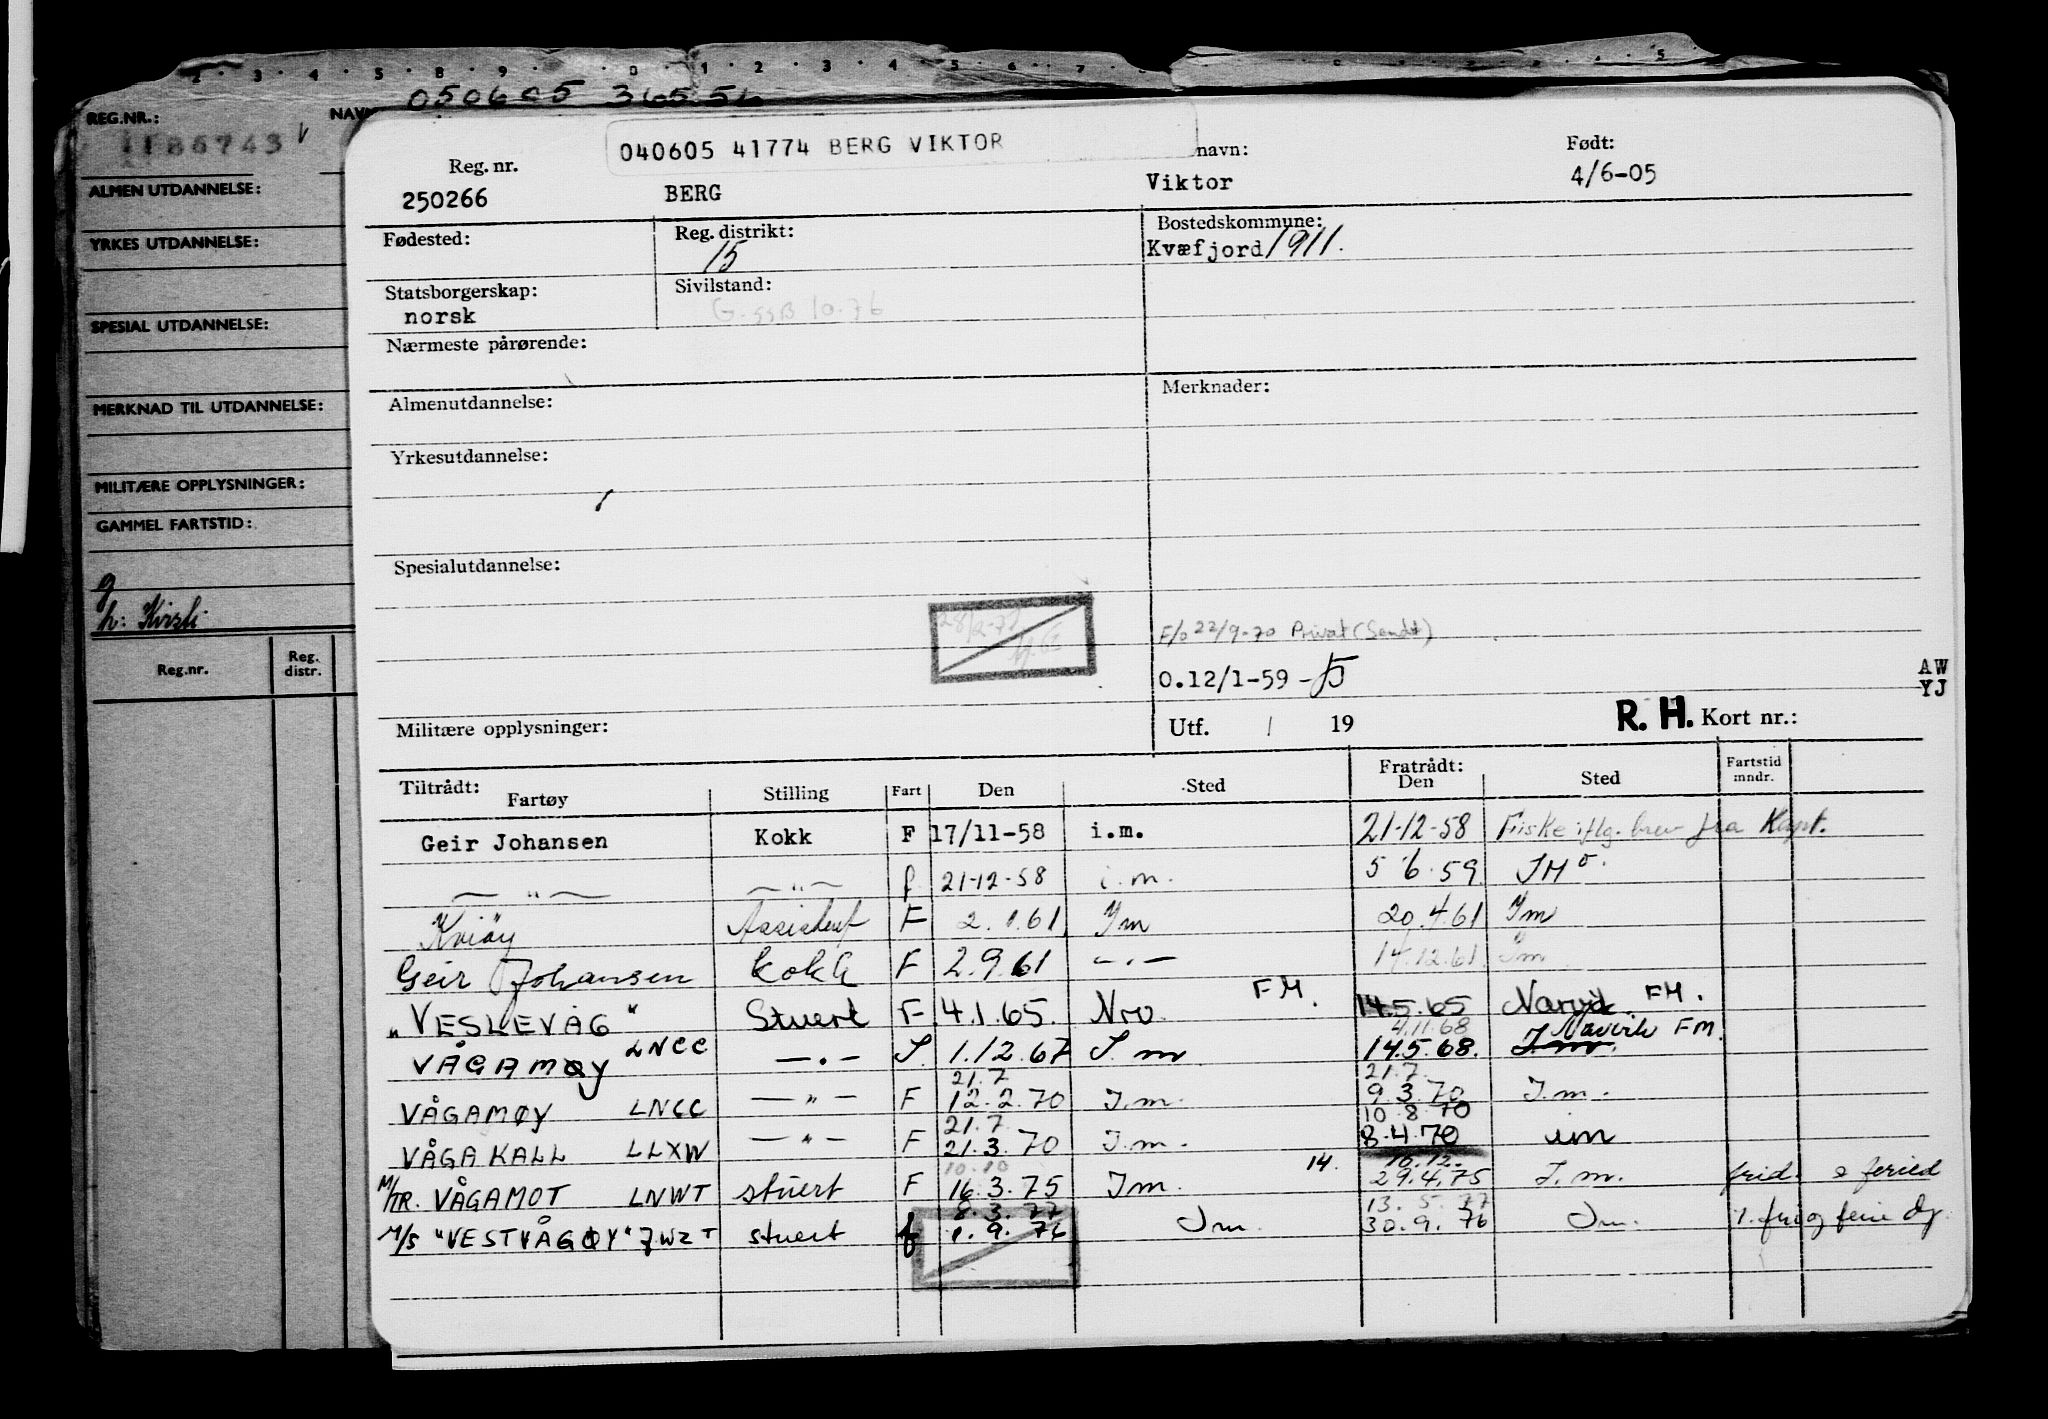 050605 36556
REG.NR.: NAVN
1186743 V
ALMEN UTDANNELSE:
YRKES UTDANNELSE:
SPESIAL UTDANNELSE:
MERKNAD TIL UTDANNELSE:
MILITÆRE OPPLYSNINGER:
GAMMEL FARTSTID:
g
h: Kirsti
Reg.nr. Reg. distr.
040605 41774 BERG VIKTOR
Reg. nr. navn: Født:
250266 BERG Viktor 4/6-05
Fødested: Reg. distrikt: Bostedskommune:
15 Kvæfjord 1911.
Statsborgerskap: Sivilstand:
norsk G. SSB 10.76
Nærmeste pårørende:
Almenutdannelse: Merknader:
Yrkesutdannelse:
Spesialutdannelse:
F/o 22/9-70 Privat (Sendt)
O.12/1-59 -
AW
YJ
Militære opplysninger: Utf. / 19 R. H. Kort nr.:
Tiltrådt: Fratrådt: Fartstid mndr.
Fartøy Stilling Fart Den Sted Den Sted
Geir Johansen Kokk F 17/11-58 i.m. 21-12-58 Fiske iflg. brev fra Kapt.
— " — — " — f 21-12-58 i.m. 5.6.59 IM
Kviøy Assistent F 2.1.61 Im 20.4.61 Im
Geir Johansen Kokk F 2.9.61 — . — 14.12.61 Im
"VESLEVÅG" Stuert F 4.1.65. Nrv. FM. 14.5.65 Narvik FM.
4.11.68 Narvik FM.
VÅGAMØY LNCC — . — I. 1.12.67 I.m 14.5.68. I.m.
21.7 21.7.
VÅGAMØY LNCC — " — F 12.2.70 I.m. 9.3.70 I.m.
21.7. 10.8.70
VÅGAKALL LLXW — " — F 21.3.70 I.m. 8.4.70 im
10.10 14. 16.12.
M/TR. VÅGAMOT LNWT stuert F 16.3.75 Im. 29.4.75 I.m. frid. e feried
8.3.77 13.5.77
M/S "VESTVÅGØY" JWZT stuert f 1.9.76 Im. 30.9.76 Im. 1. fri og ferie dg.